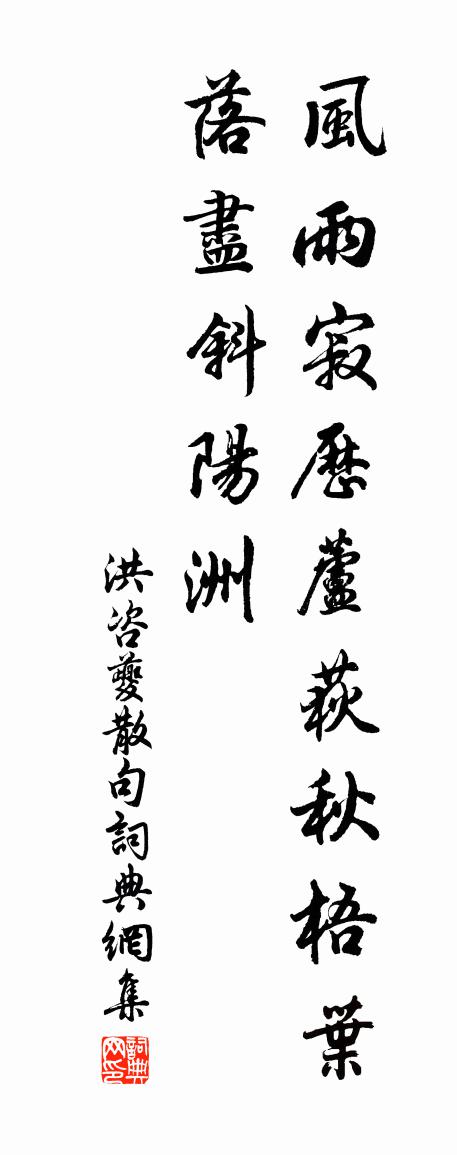 風雨寂歷蘆萩秋梧葉
落盡斜陽洲
洪咨夔散句詞典網集
詞典网印